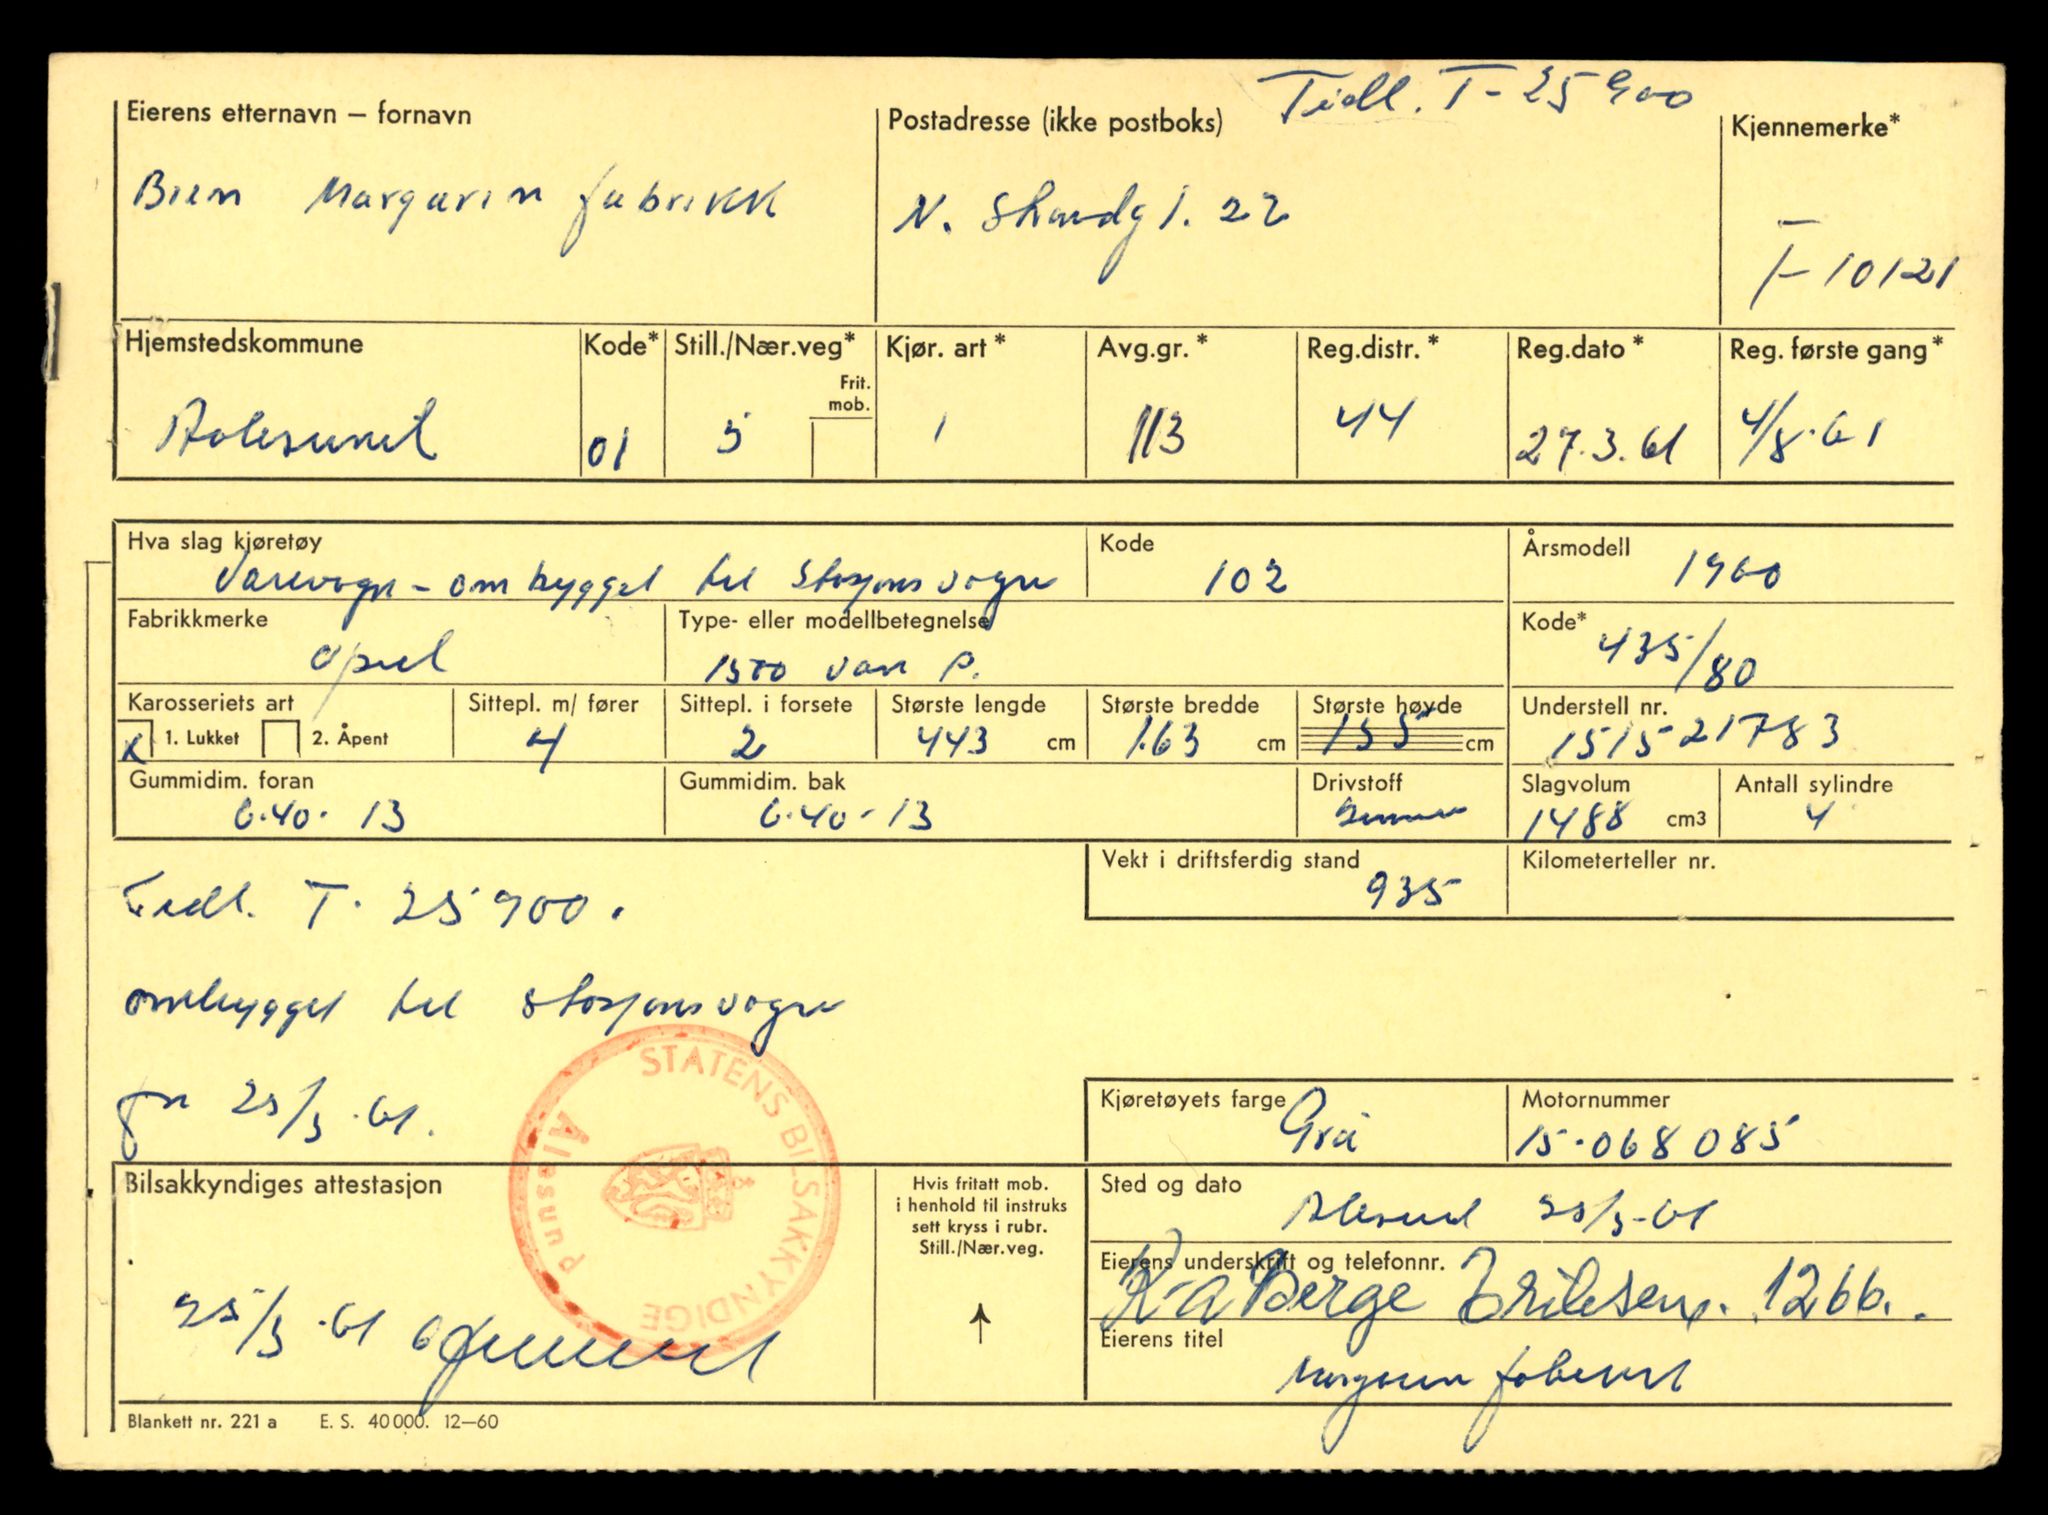 Tidl. T-25900
Eierens etternavn – fornavn
Postadresse (ikke postboks)
Kjennemerke*
Bien Margarin fabrikk
N. Strandgt. 22
T-10121
Hjemstedskommune
Kode*
Still./Nær.veg*
Frit. mob.
Kjør. art*
Avg.gr.*
Reg.distr.*
Reg.dato*
Reg. første gang*
Aalesund
01
5
1
113
44
27.3.61
4/8-61
Hva slag kjøretøy
Kode
Årsmodell
Varevogn - ombygget til Stasjonsvogn
102
1960
Fabrikkmerke
Type- eller modellbetegnelse
Kode*
Opel
1500 van P.
435/80
Karosseriets art
Sittepl. m/ fører
Sittepl. i forsete
Største lengde
Største bredde
Største høyde
Understell nr.
x 1. Lukket 2. Åpent
4
2
443 cm
163 cm
155 cm
151521783
Gummidim. foran
Gummidim. bak
Drivstoff
Slagvolum
Antall sylindre
6.40-13
6.40-13
1488 cm3
4
Vekt i driftsferdig stand
Kilometerteller nr.
935
Tidl. T-25900.
ombygget til stasjonsvogn
25/3-61.
STATENS BILSAKKYNDIGE
Ålesund
Kjøretøyets farge
Motornummer
Grå
15-068085
Bilsakkyndiges attestasjon
Hvis fritatt mob.
i henhold til instruks
sett kryss i rubr.
Still./Nær.veg.
Sted og dato
Ålesund 25/3-61
Eierens underskrift og telefonnr.
Berge Eriksen. 1266.
25/3-61
Eierens titel
Margarin fabrikk
Blankett nr. 221 a E. S. 40 000. 12—60